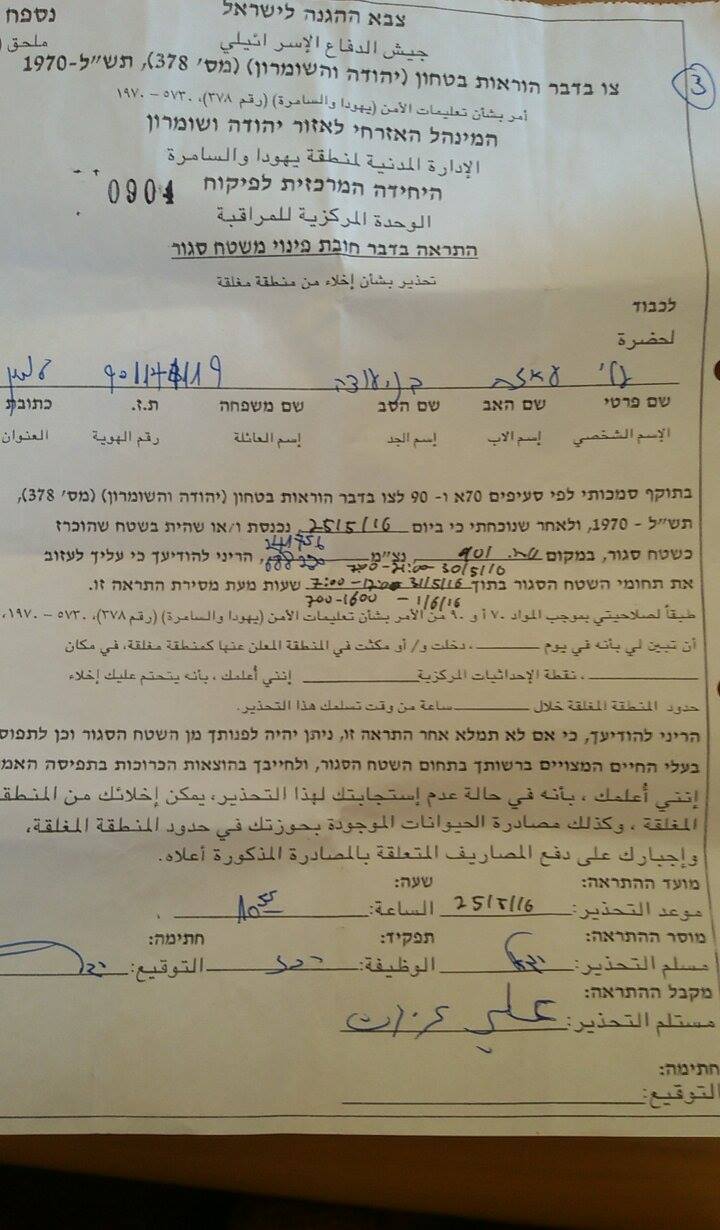 צבא ההגנה לישראל
נספח
جيش الدفاع الإسرائيلي
ملحق
צו בדבר הוראות בטחון (יהודה והשומרון) (מס׳ 378), תש״ל-1970
3
أمر بشأن تعليمات الأمن (يهودا والسامرة) (رقم ٣٧٨)، ٥٧٣٠ – ١٩٧٠
המינהל האזרחי לאזור יהודה ושומרון
الإدارة المدنية لمنطقة يهودا والسامرة
היחידה המרכזית לפיקוח
0904
الوحدة المركزية للمراقبة
התראה בדבר חובת פינוי משטח סגור
تحذير بشأن إخلاء من منطقة مغلقة
לכבוד
لحضرة
שם פרטי שם האב שם הסב שם משפחה ת.ז. כתובת
الإسم الشخصي إسم الاب إسم الجد إسم العائلة رقم الهوية العنوان
בתוקף סמכותי לפי סעיפים 70א ו- 90 לצו בדבר הוראות בטחון (יהודה והשומרון) (מס׳ 378),
תש״ל - 1970, ולאחר שנוכחתי כי ביום 25/5/16, נכנסת ו/או שהית בשטח שהוכרז
241756
כשטח סגור, במקום 901 נצ״מ, הריני להודיעך כי עליך לעזוב
30/5/16
את תחומי השטח הסגור בתוך 31/5/16 7:00-12:00 שעות מעת מסירת התראה זו.
1/6/16 – 700-1600
طبقاً لصلاحيتي بموجب المواد ٧٠ أ و ٩٠ من الأمر بشأن تعليمات الأمن (يهودا والسامرة) (رقم ٣٧٨)، ٥٧٣٠ – ١٩٧٠،
أن تبين لي بأنه في يوم، دخلت و/ أو مكثت في المنطقة المعلن عنها كمنطقة مغلقة، في مكان
، نقطة الإحداثيات المركزية إنني أعلمك، بأنه يتحتم عليك إخلاء
حدود المنطقة المغلقة خلال ساعة من وقت تسلمك هذا التحذير.
הריני להודיעך, כי אם לא תמלא אחר התראה זו, ניתן יהיה לפנותך מן השטח הסגור וכן לתפוס
בעלי החיים המצויים ברשותך בתחום השטח הסגור, ולחייבך בהוצאות הכרוכות בתפיסה
إنني أعلمك، بأنه في حالة عدم إستجابتك لهذا التحذير، يمكن إخلائك من
المغلقة، وكذلك مصادرة الحيوانات الموجودة بحوزتك في حدود المنطقة المغلقة،
وإجبارك على دفع المصاريف المتعلقة بالمصادرة المذكورة أعلاه.
מועד ההתראה: שעה:
موعد التحذير: 25/5/16 الساعة: 10
מוסר ההתראה: תפקיד: חתימה:
مسلم التحذير: الوظيفة: التوقيع:
מקבל ההתראה:
مستلم التحذير: علي
חתימה:
التوقيع: